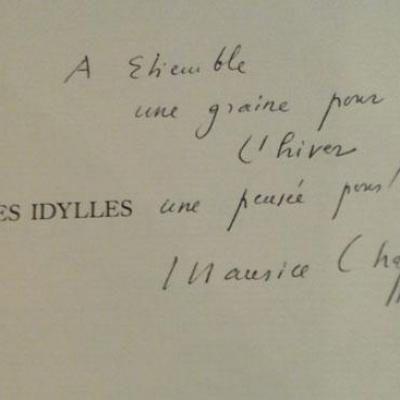 A Etiemble
une graine pour
l'hiver
ES IDYLLES une pensée pour
Maurice Cha